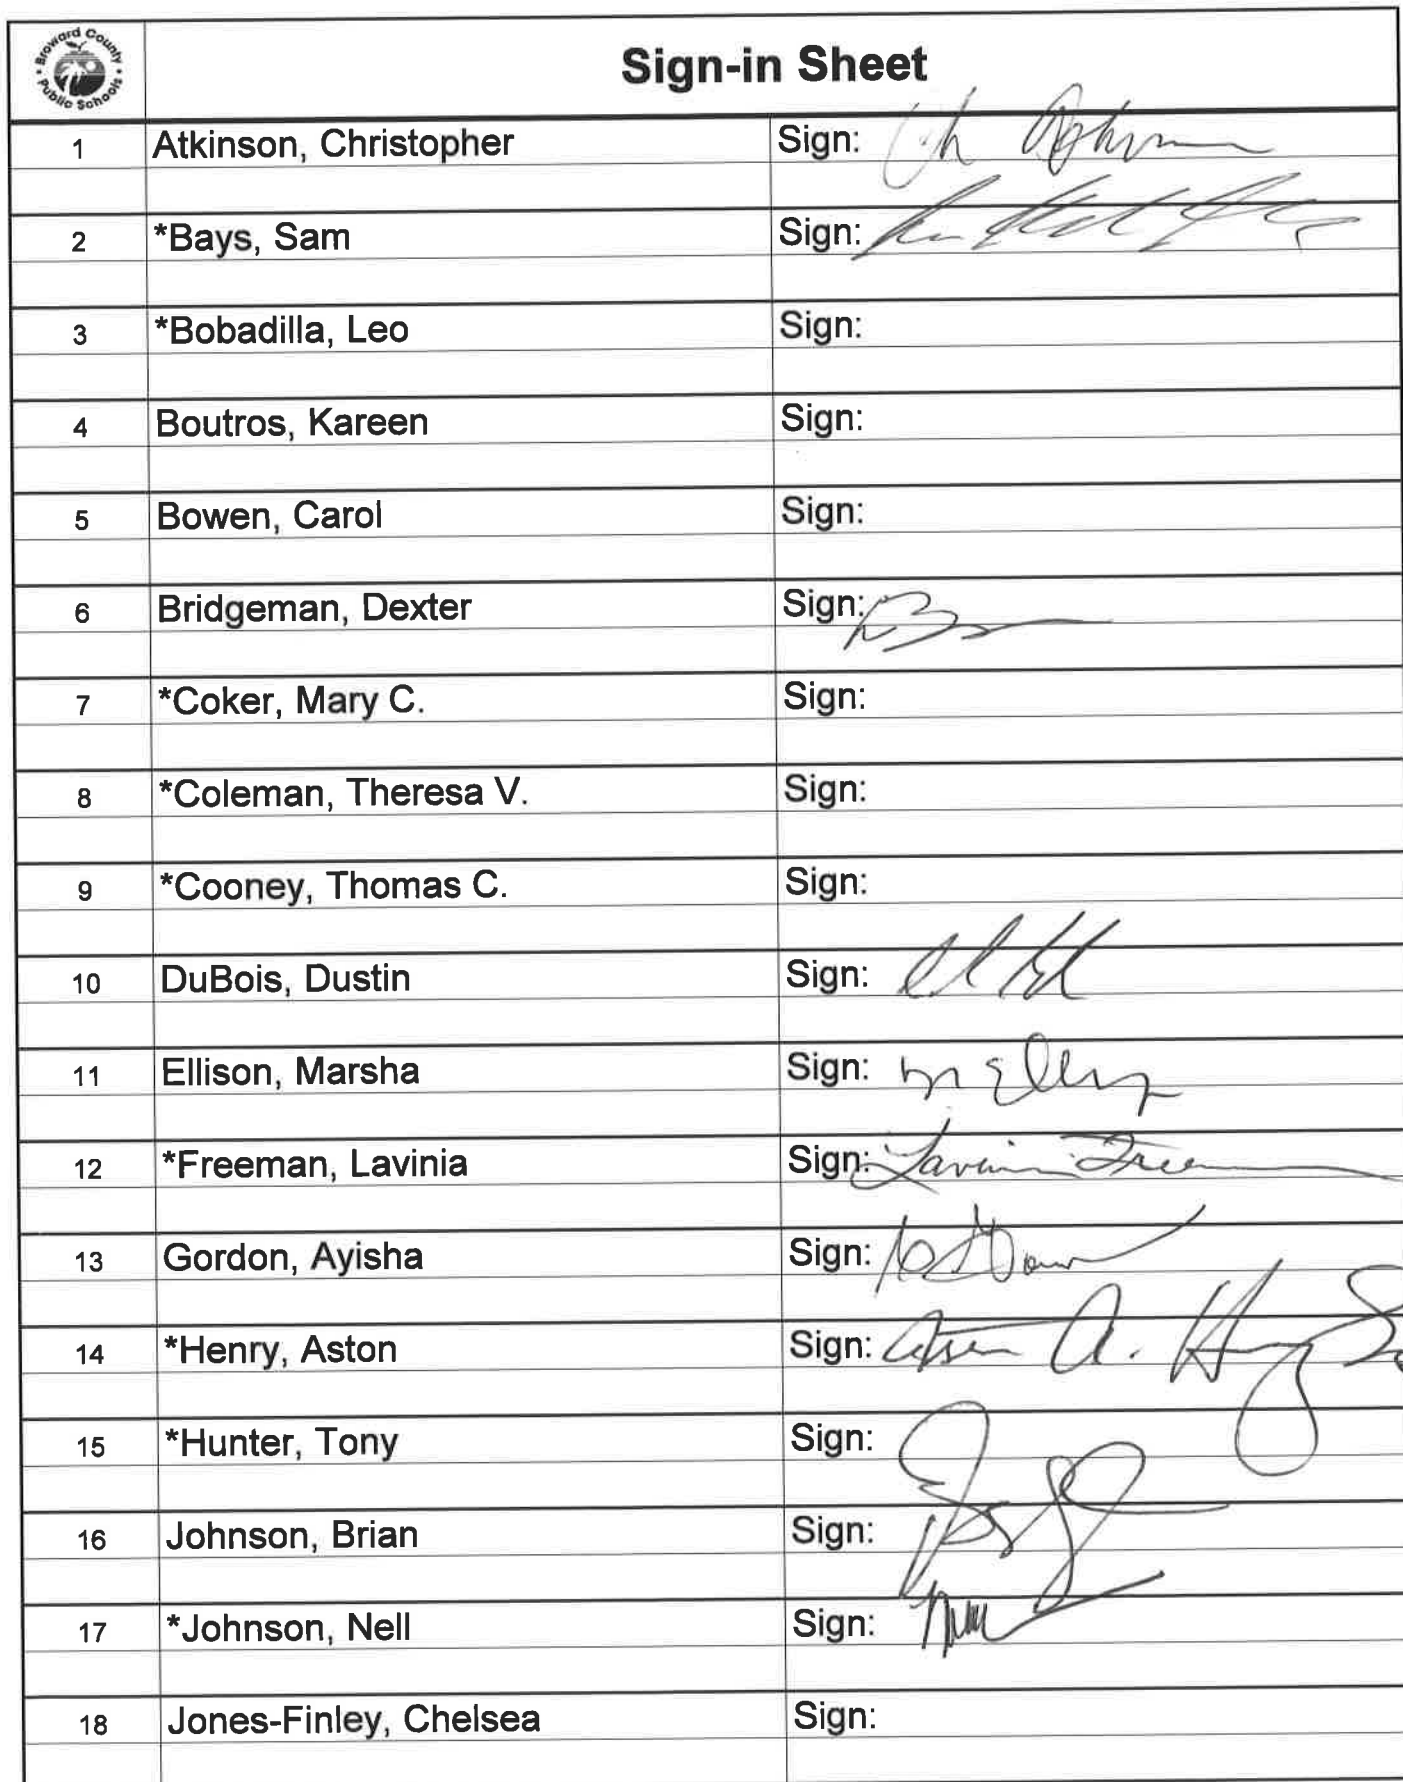 Broward County
Public Schools
Sign-in Sheet
1 Atkinson, Christopher Sign:
2 *Bays, Sam Sign:
3 *Bobadilla, Leo Sign:
4 Boutros, Kareen Sign:
5 Bowen, Carol Sign:
6 Bridgeman, Dexter Sign:
7 *Coker, Mary C. Sign:
8 *Coleman, Theresa V. Sign:
9 *Cooney, Thomas C. Sign:
10 DuBois, Dustin Sign:
11 Ellison, Marsha Sign:
12 *Freeman, Lavinia Sign: Lavinia Freeman
13 Gordon, Ayisha Sign:
14 *Henry, Aston Sign: Aston A. Henry
15 *Hunter, Tony Sign:
16 Johnson, Brian Sign:
17 *Johnson, Nell Sign:
18 Jones-Finley, Chelsea Sign: